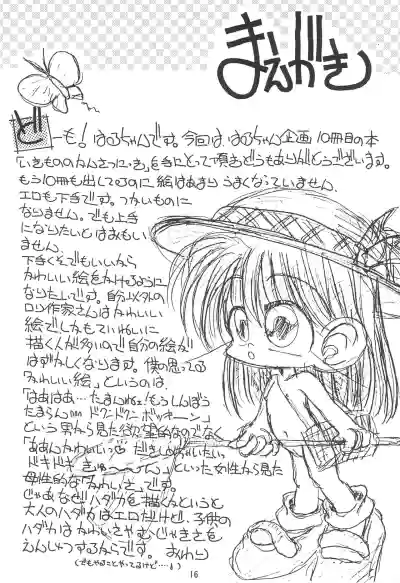 まえがき
どーも!はるちゃんです。今回は、はるちゃん企画10冊目の本
「いきもののかんさつにっき」を手にとって頂きどうもありがとうございます。
もう10冊も出してるのに絵はあまりうまくなっていません
エロも下手です。つかいものに
なりません。でも上手
になりたいとはおもい
ません。
下手くそでもいいから
かわいい絵をかけるように
なりたいです。自分以外の
ロリ作家さんはかわいい
絵でしかもていねいに
描く人が多いので自分の絵が
はずかしくなります。僕の思ってる
「かわいい絵」というのは、
「はあはあ…たまんねぇ!もうしんぼう
たまらん ドクンドクン ボッキーン」
という男から見た欲望的なのでなく
「ああんかわいいっ♡だきしめたいい
ドキドキ きゅ〜ん」といった女性から見た
母性的な「かわいさ」です。
じゃあなぜハダカを描くんというと
大人のハダカはエロだけど、子供の
ハダカはかわいさやむじゃきさを
えんしゅつするからです。 おわり
(でもやることやってるけど…)
16